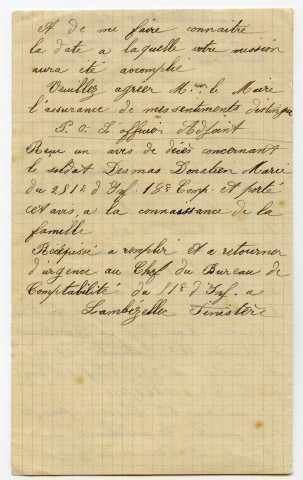 A de me faire connaitre
la date a laquelle votre mission
aura été accomplie
Veuillez agréer M.eur le Maire
l'assurance de mes sentiments distingués
P. O. L'officier Adjoint
Reçu un avis de décès concernant
le soldat Desmas Donatien Marie
du 281e d'Inf. 18e Comp. et porté
cet avis, a la connaissance de la
famille
Récépissé a remplir et a retourner
d'urgence au Chef du Bureau de
Comptabilité du d'Inf. a
Lambézellec Finistère